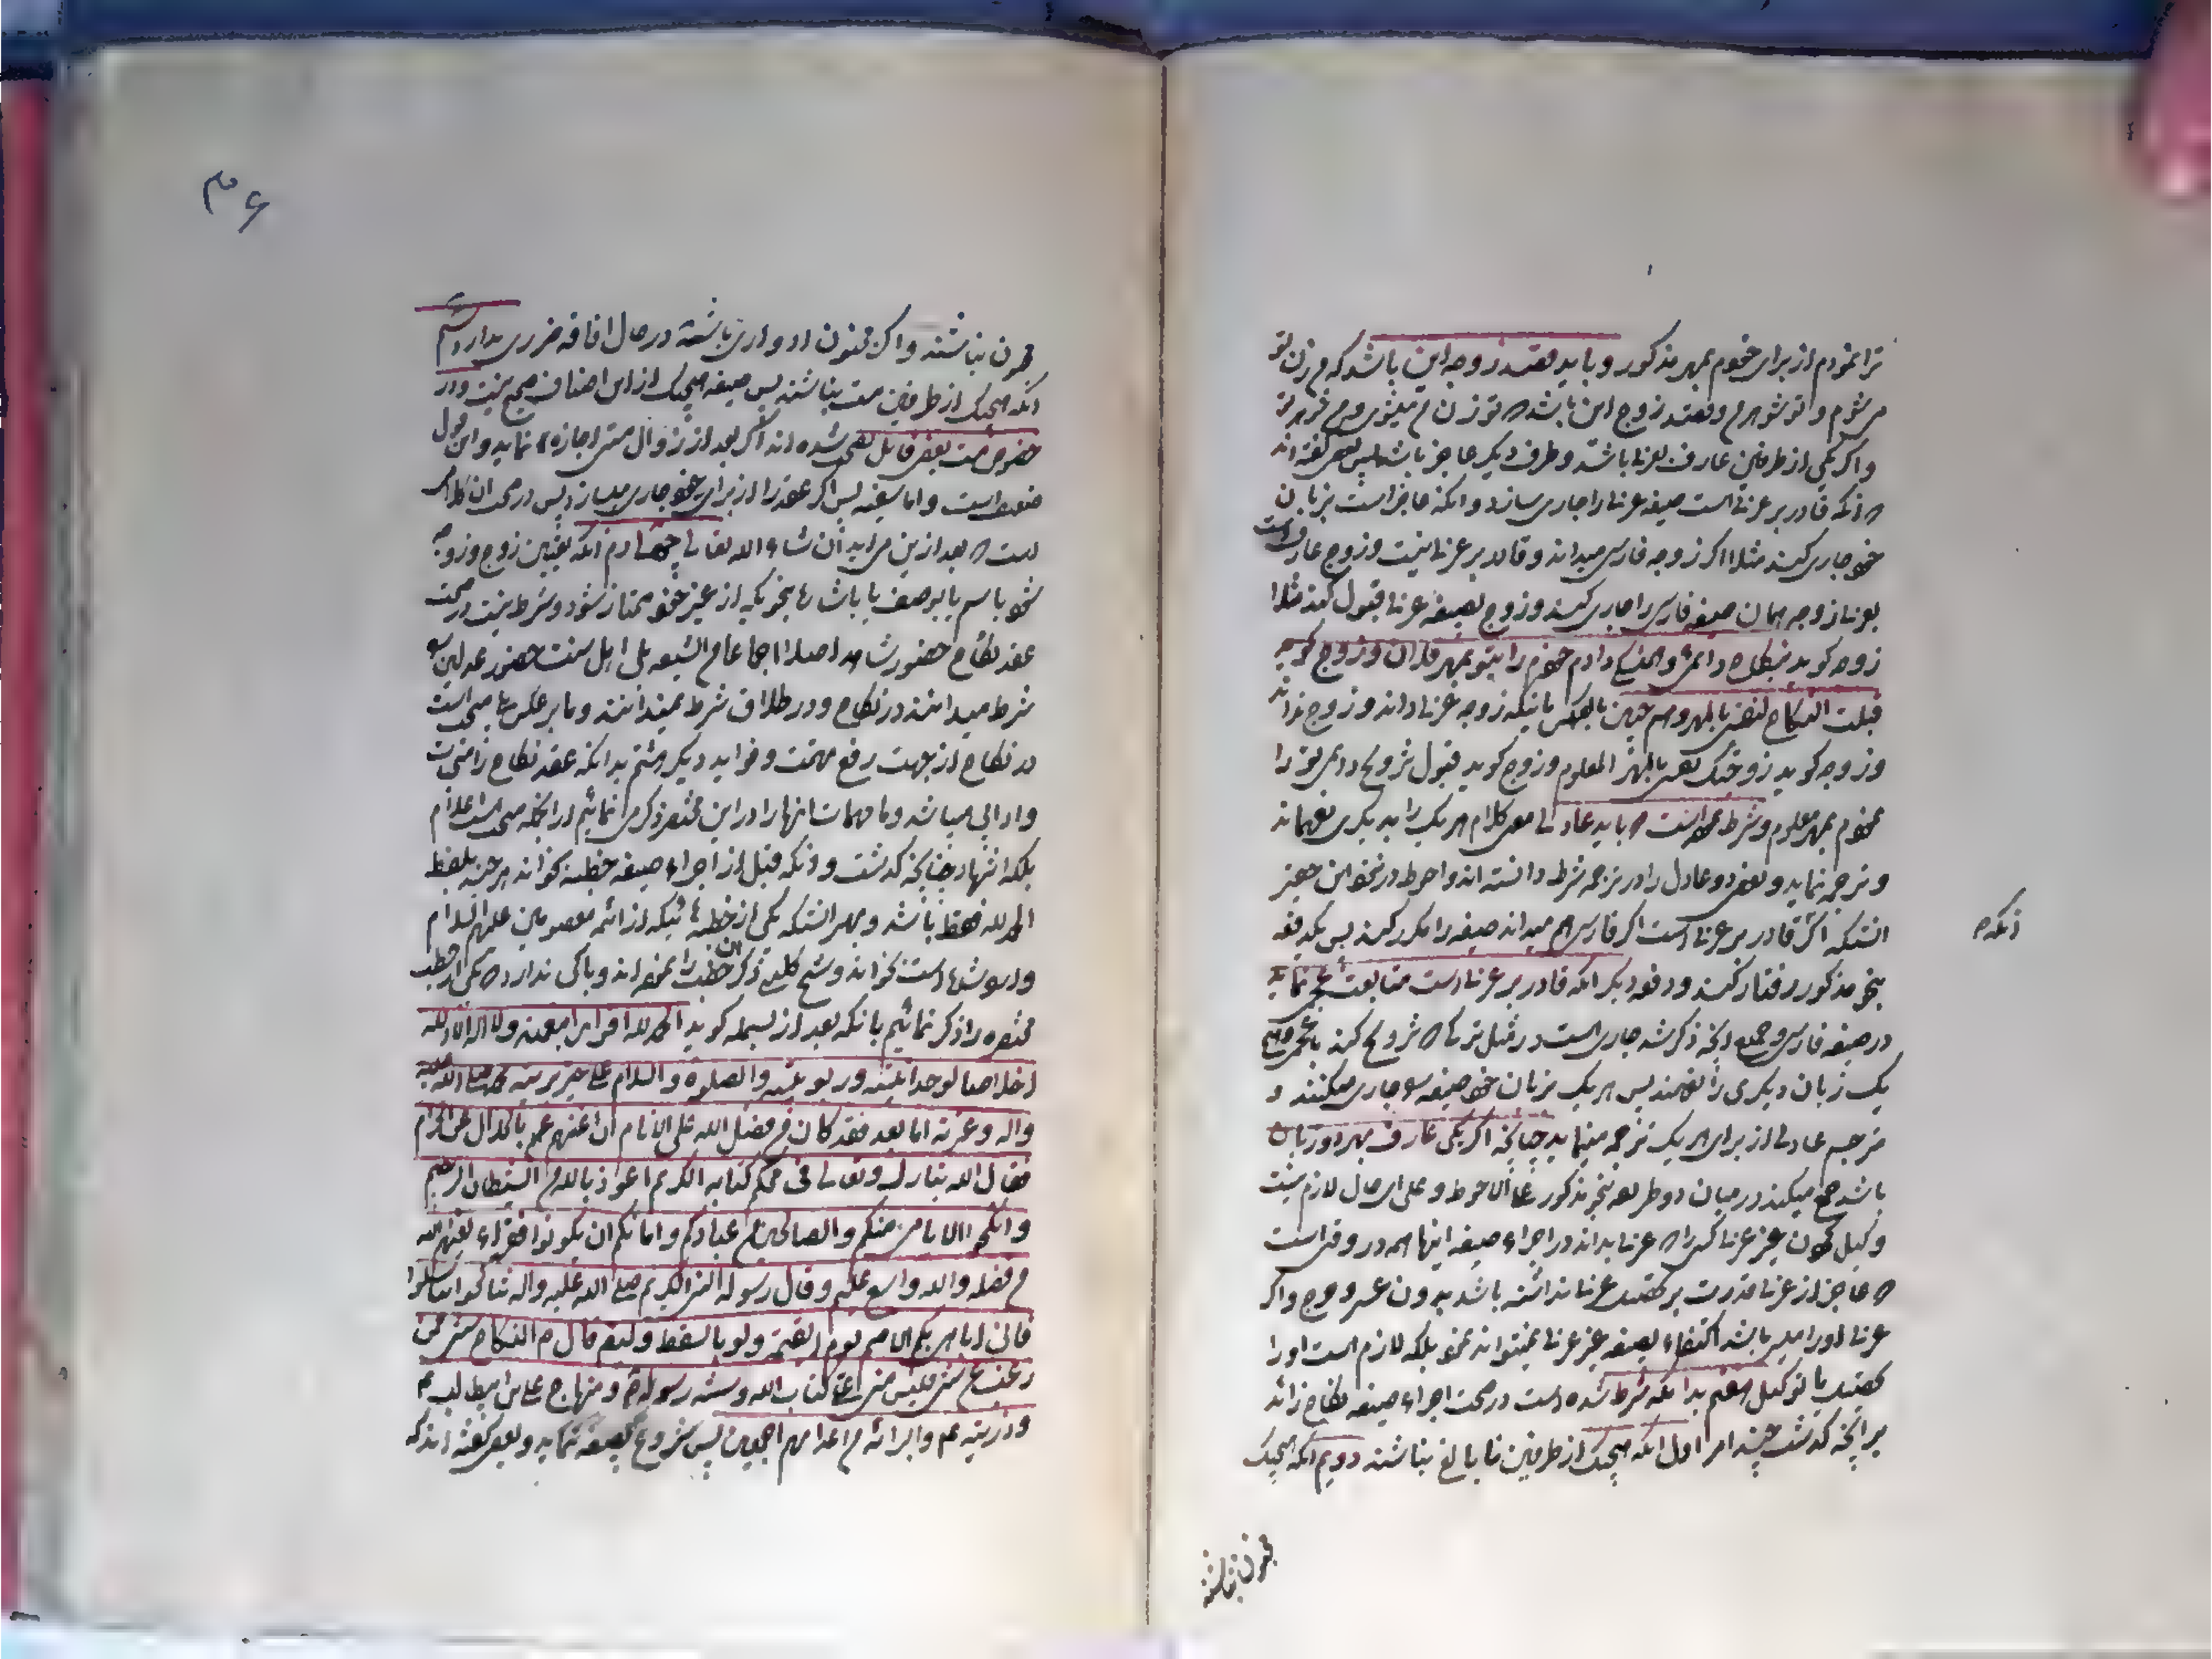 ترا نمودم از برای خودم بمهر مذکور و باید قصد زوجه این باشد که من زن تو
میشوم و تو شوهرم و قصد زوج این باشد که تو زن من میشوی و من شوهر تو
و اگر یکی از طرفین عارف بعربی باشد و طرف دیگر عاجز باشد پس بعضی گفته اند
که آنکه قادر بر عربی است صیغه عربی را جاری سازد و آنکه عاجز است بزبان
خود جاری کند مثلا اگر زوجه فارسی میداند و قادر بر عربی نیست و زوج عارف است
بعربی زوجه همان صیغه فارسی را جاری کند و زوج بصیغه عربی قبول کند مثلا
زوجه کوید بنکاح دائمی دادم خودم را بتو بمهر فلان و زوج کوید
قبلت النکاح لنفسی بالمهر و هم چنین بالعکس باینکه زوجه عربی داند و زوج نداند
و زوجه کوید زوجتک نفسی بالمهر المعلوم و زوج کوید قبول تزویج دائمی تو را
نمودم بمهر معلوم و شرط است که باید عادلی معنی کلام هر یک را بدیگری بفهماند
و ترجمه نماید و بعضی دو عادل را در ترجمه شرط دانسته اند و احوط در نحو این
آنستکه اگر قادر بر عربی است اگر فارسی هم میداند صیغه را مکرر کند پس یکدفعه
آنکه
بنحو مذکور رفتار کند و دفعه دیگر آنکه قادر بر عربی است متابعت عجمی نماید
در صیغه فارسی و جمیع آنچه ذکر شد جاری است در مثل ترکی که تزویج کند با عجمی و هیچ
یک زبان دیگری را نفهمند پس هر یک بزبان خود صیغه را جاری میکنند و
مترجم عادلی از برای هر یک ترجمه مینماید چنانچه اگر یکی عارف بهر دو زبان
باشد جمع میکند در میان دو طریقه بنحو مذکور علی الاحوط و علی ای حال لازم نیست
وکیل نمودن غیر عربی کسی را که عربی بداند در اجراء صیغه اینها همه در وقتی است
که عاجز از عربی قدرت بر تحصیل عربی نداشته باشد بدون عسر و حرج و اگر
عربی او را میسر باشد اکتفاء بصیغه غیر عربی نمیتواند نمود بلکه لازم است او را
تحصیل یا توکیل هفتم بدانکه شرط شده است در صحت اجراء صیغه نکاح زائد
بر آنچه گذشت چند امر اول آنکه هیچیک از طرفین نابالغ نباشند دویم آنکه هیچیک
مجنون نباشند
۳۶
مجنون نباشند و اگر مجنون ادواری باشند در حال افاقه ضرری ندارد سیم
آنکه هیچیک از طرفین مست نباشند پس صیغه هیچیک از این اصناف صحیح نیست و در
خصوص مست بعضی قائل بصحت شده اند اگر بعد از زوال مستی اجازه نماید و این قول
ضعیف است و اما سفیه پس اگر عقد را از برای غیر جاری بسازد پس در صحت آن کلامی
است که بعد از این می آید ان شاء الله تعالی چهارم آنکه تعیین زوج و زوجه
شود باسم یا بوصف یا باشاره بنحویکه از غیر خود ممتاز شود و شرط نیست در صحت
عقد نکاح حضور شاهد اصلا اجماعا من الشیعه بلی اهل سنت حضور عدلین را
شرط میدانند در نکاح و در طلاق شرط نمیدانند و ما بر عکس بلی مستحب است
در نکاح از جهت رفع تهمت و فواید دیگر هشتم بدانکه عقد نکاح را سنن
و آدابی میباشد و ما مهمات آنها را در این مختصر ذکر می نمائیم از آنجمله مستحب است اعلام
بلکه اشهاد چنانچه گذشت و آنکه قبل از اجراء صیغه خطبه بخواند هر چند بلفظ
الحمد لله فقط باشد و بهتر آنستکه یکی از خطبه هائیکه از ائمه معصومین علیهم السلام
وارد شده است بخواند و شیخ کلینی ذکر آن خطب را نموده اند و باکی ندارد که یکی از خطب
مختصره را ذکر نمائیم بانکه بعد از بسمله کوید الحمد لله اقرارا بنعمته و لا اله الا الله
اخلاصا لوحدانیته و ربوبیته و الصلوة و السلام علی خیر بریته محمد صلی الله علیه
و اله و عترته اما بعد فقد کان من فضل الله علی الانام ان اغنیهم بالحلال عن الحرام
فقال الله تبارک و تعالی فی محکم کتابه الکریم اعوذ بالله من الشیطان الرجیم
و انکحوا الایامی منکم و الصالحین من عبادکم و امائکم ان یکونوا فقراء یغنهم الله
من فضله و الله واسع علیم و قال رسوله النبی الکریم صلی الله علیه و اله تناکحوا تناسلوا
فانی اباهی بکم الامم یوم القیمة و لو بالسقط و ایضا قال ص النکاح سنتی فمن
رغب عن سنتی فلیس منی علی کتاب الله و سنة رسوله ص و منهاج علی بن ابیطالب ع
و ذریته ع و البرائة من اعدائهم اجمعین پس شروع بصیغه نماید و بعضی گفته اند که